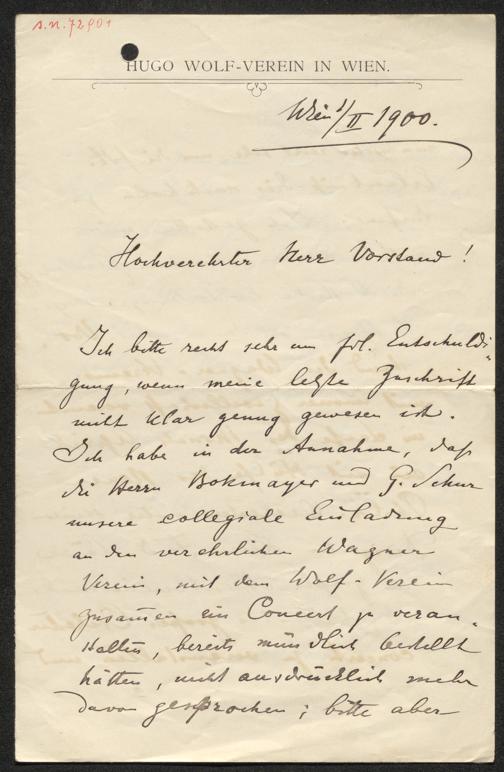 s.n. 72901
HUGO WOLF-VEREIN IN WIEN.
Wien 1/II 1900.
Hochverehrter Herr Vorstand!
Ich bitte recht sehr um frl. Entschuldi-
gung, wenn meine letzte Zuschrift
nicht klar genug gewesen ist.
Ich habe in der Annahme, daß
die Herrn Bokmayer und G. Schur
unsere collegiale Einladung
an den verehrlichen Wagner
Verein, mit dem Wolf-Verein
zusam̄en ein Concert zu veran-
stalten, bereits mündlich bestellt
hätten, nicht ausdrücklich mehr
davon gesprochen; bitte aber